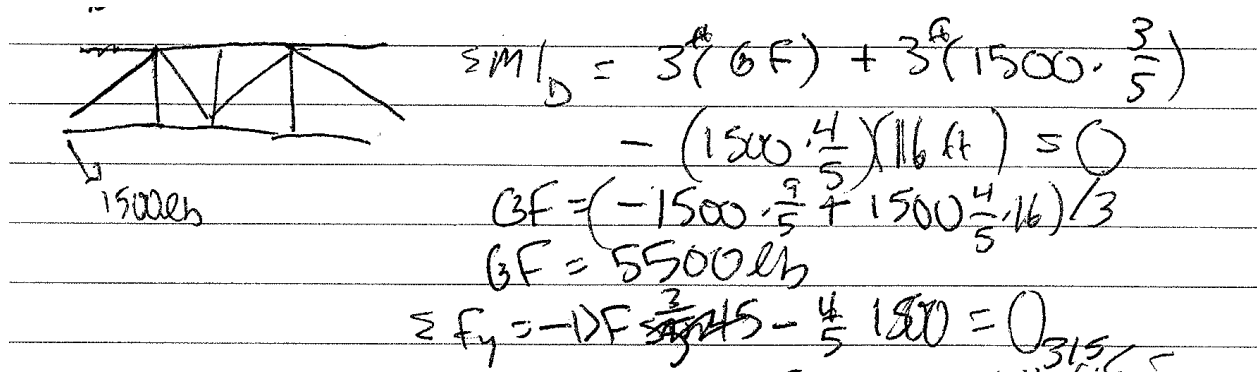 ΣM|_D = 3^ft(GF) + 3^ft(1500 · 3/5)
- (1500 · 4/5)(16 ft) = 0
1500lb
GF = (-1500 · 9/5 + 1500 4/5 · 16)/3
GF = 5500 lb
ΣFy = -DF 3/5 - 4/5 1500 = 0